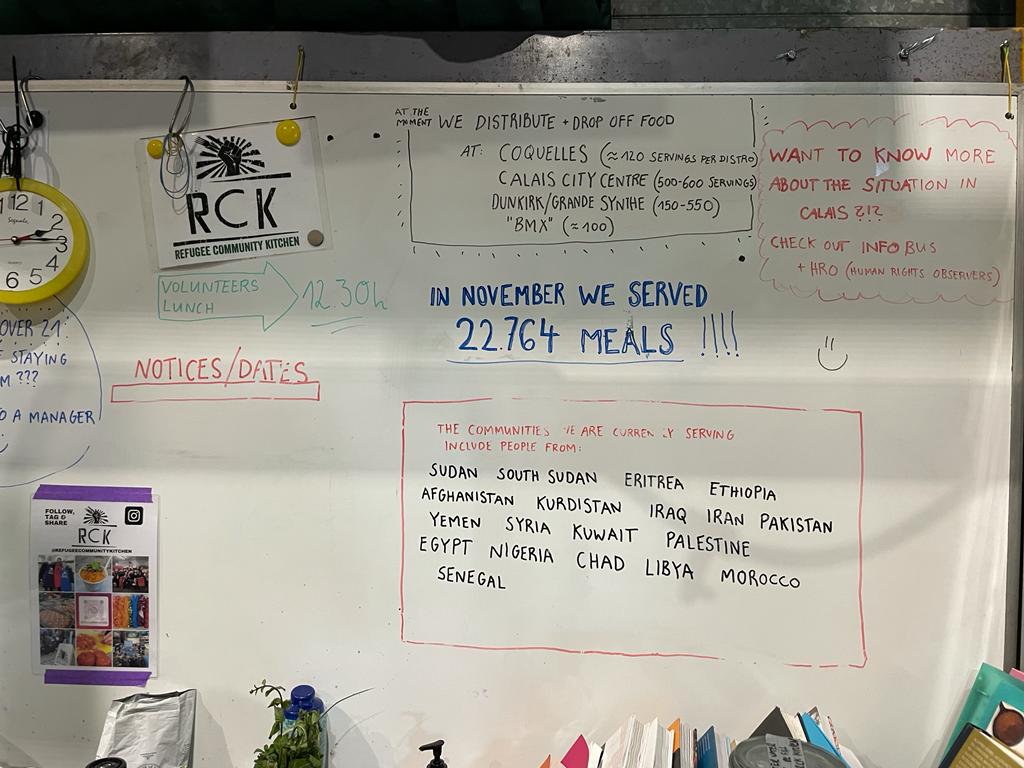 AT THE
MOMENT WE DISTRIBUTE + DROP OFF FOOD
AT: COQUELLES (≈120 SERVINGS PER DISTRO)
CALAIS CITY CENTRE (500-600 SERVINGS)
DUNKIRK/GRANDE SYNTHE (150-550)
"BMX" (≈100)
WANT TO KNOW MORE
ABOUT THE SITUATION IN
CALAIS ?!?
CHECK OUT INFO BUS
+ HRO (HUMAN RIGHTS OBSERVERS)
RCK
REFUGEE COMMUNITY KITCHEN
12 1
2
3
4
5
6
VOLUNTEERS
LUNCH
12.30h
IN NOVEMBER WE SERVED
22.764 MEALS !!!!
NOTICES/DATES
OVER 21
STAYING
???
A MANAGER
THE COMMUNITIES WE ARE CURRENTLY SERVING
INCLUDE PEOPLE FROM:
SUDAN SOUTH SUDAN ERITREA ETHIOPIA
AFGHANISTAN KURDISTAN IRAQ IRAN PAKISTAN
YEMEN SYRIA KUWAIT PALESTINE
EGYPT NIGERIA CHAD LIBYA MOROCCO
SENEGAL
FOLLOW,
TAG &
SHARE
RCK
@REFUGEECOMMUNITYKITCHEN